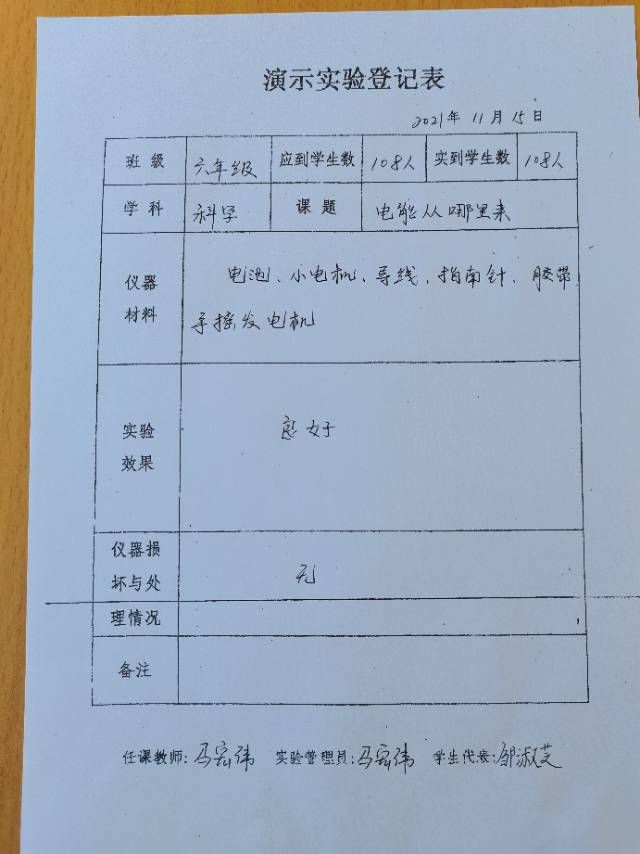 演示实验登记表
2021年 11月 15日
班 级 六年级 应到学生数 108人 实到学生数 108人
学 科 科学 课 题 电能从哪里来
仪器
材料
电池、小电机、导线、指南针、胶带
手摇发电机
实验
效果
良好
仪器损
坏与处
理情况
无
备注
任课教师:马宏伟 实验管理员:马宏伟 学生代表:邹淑艾